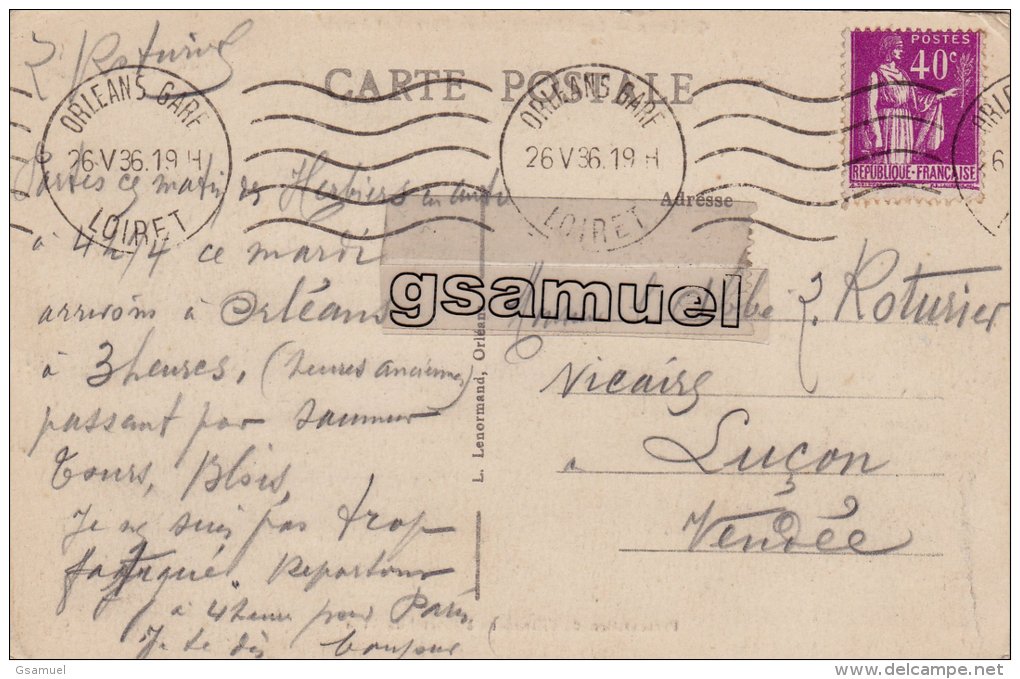 R. Roturier
CARTE POSTALE
POSTES
40c
REPUBLIQUE-FRANÇAISE
ORLEANS GARE
26·V36.19H
LOIRET
ORLEANS GARE
26V36.19H
LOIRET
Adresse
Partis ce matin des Herbiers en auto
à 4h/4 ce mardi
arrivons à Orléans
à 3 heures, (heures anciennes)
passant par Saumur
Tours, Blois,
Je ne suis pas trop
fatigué. Repartons
à 4 heure pour Paris
Je te dis bonjour
L. Lenormand, Orléans
gsamuel
R. Roturier
Vicaire
à Luçon
Vendée
Gsamuel
www.delcampe.net